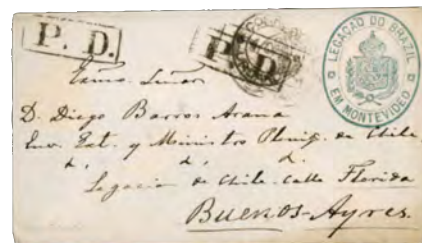 P. D.
P. D.
LEGAÇÃO DO BRAZIL
EM MONTEVIDEO
Exmo. Señor
D. Diego Barros Arana
Env. Ext. y Ministro Plenip. de Chile
&. &. &.
Legacion de Chile. Calle Florida
Buenos-Ayres.